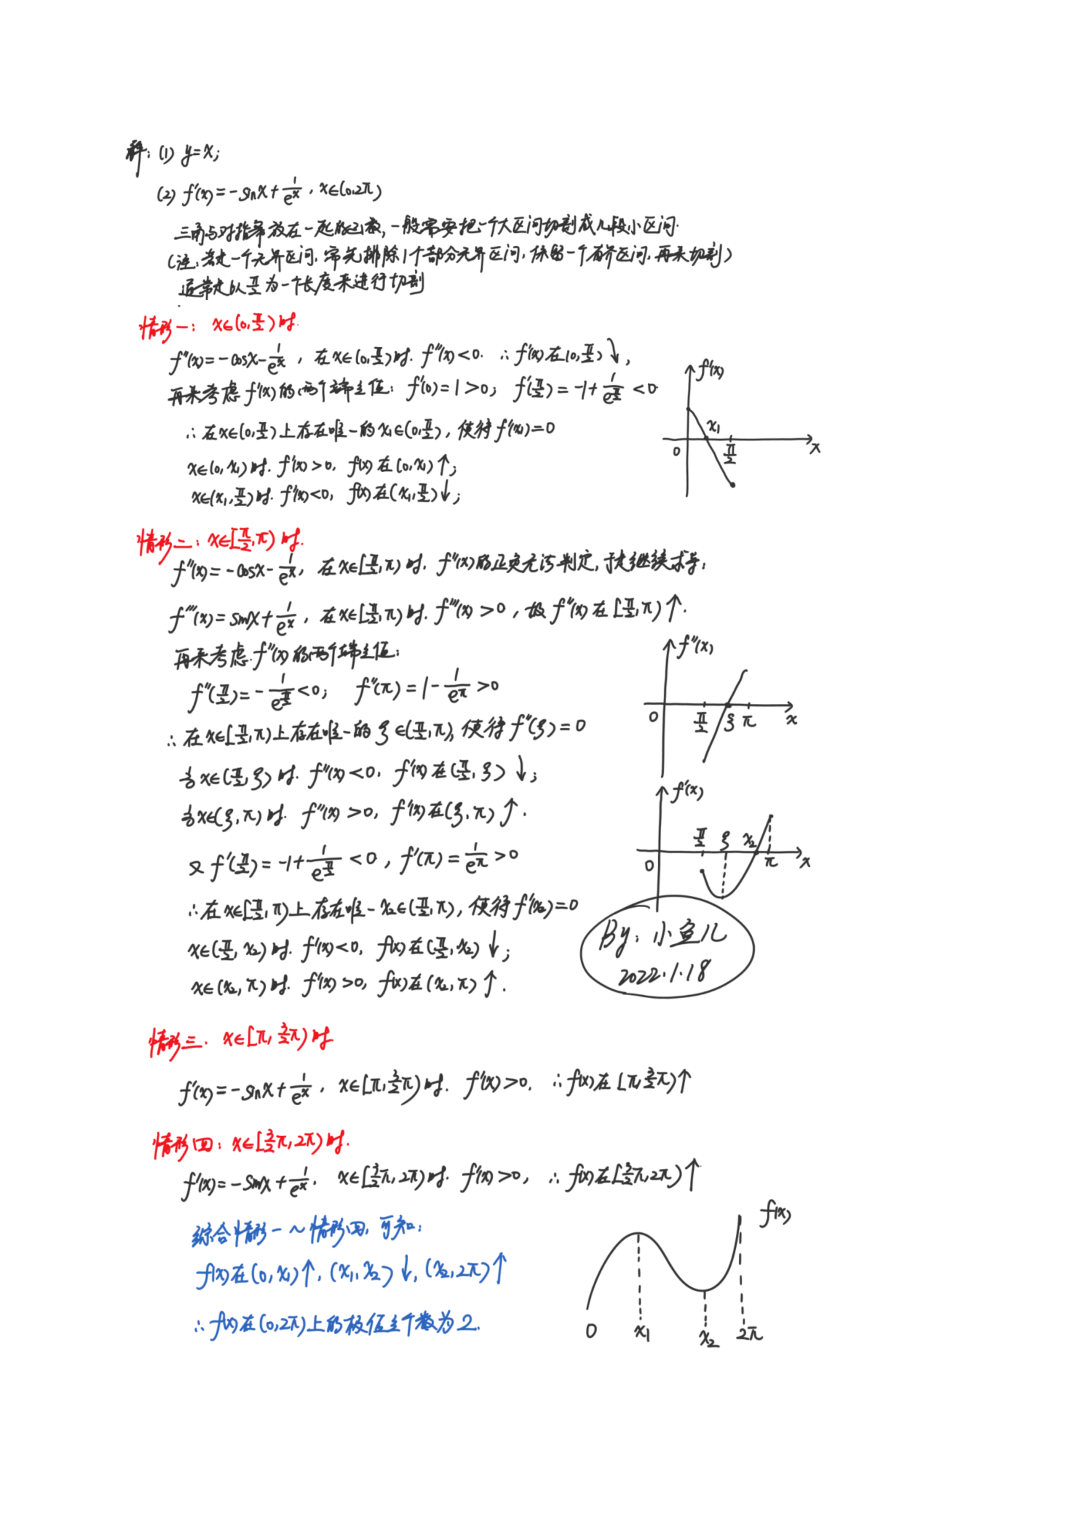 解：(1) y=x；
(2) f'(x)=-sinx+1/e^x，x∈(0,2π)
三角与对指幂放在一起的函数，一般需要把一个大区间切割成几段小区间.
(注：若是一个无界区间，需先排除1个部分无界区间，保留一个有界区间，再来切割)
通常是以π/2为一个长度来进行切割
情形一：x∈(0,π/2)时.
f''(x)=-cosx-1/e^x，在x∈(0,π/2)时. f''(x)<0. ∴f'(x)在(0,π/2)↓，
再来考虑f'(x)的两个端点值：f'(0)=1>0；f'(π/2)=-1+1/e^(π/2)<0
∴在x∈(0,π/2)上存在唯一的x₁∈(0,π/2)，使得f'(x₁)=0
x∈(0,x₁)时. f'(x)>0, f(x)在(0,x₁)↑；
x∈(x₁,π/2)时. f'(x)<0, f(x)在(x₁,π/2)↓；
f'(x)
0 x₁ π/2 x
情形二：x∈[π/2,π)时.
f''(x)=-cosx-1/e^x，在x∈[π/2,π)时. f''(x)的正负无法判定，于是继续求导：
f'''(x)=sinx+1/e^x，在x∈[π/2,π)时. f'''(x)>0，故f''(x)在[π/2,π)↑.
再来考虑f''(x)的两个端点值：
f''(π/2)=-1/e^(π/2)<0；f''(π)=1-1/e^π>0
∴在x∈[π/2,π)上存在唯一的ξ∈(π/2,π)，使得f''(ξ)=0
当x∈(π/2,ξ)时. f''(x)<0, f'(x)在(π/2,ξ)↓；
当x∈(ξ,π)时. f''(x)>0, f'(x)在(ξ,π)↑.
又f'(π/2)=-1+1/e^(π/2)<0，f'(π)=1/e^π>0
∴在x∈[π/2,π)上存在唯一x₂∈(π/2,π)，使得f'(x₂)=0
x∈(π/2,x₂)时. f'(x)<0, f(x)在(π/2,x₂)↓；
x∈(x₂,π)时. f'(x)>0, f(x)在(x₂,π)↑.
f''(x)
0 π/2 ξ π x
f'(x)
0 π/2 ξ x₂ π x
By：小鱼儿
2022.1.18
情形三. x∈[π,3/2π)时
f'(x)=-sinx+1/e^x，x∈[π,3/2π)时. f'(x)>0. ∴f(x)在[π,3/2π)↑
情形四：x∈[3/2π,2π)时.
f'(x)=-sinx+1/e^x. x∈[3/2π,2π)时. f'(x)>0，∴f(x)在[3/2π,2π)↑
综合情形一~情形四，可知：
f(x)在(0,x₁)↑，(x₁,x₂)↓，(x₂,2π)↑
∴f(x)在(0,2π)上的极值点个数为2.
f(x)
0 x₁ x₂ 2π